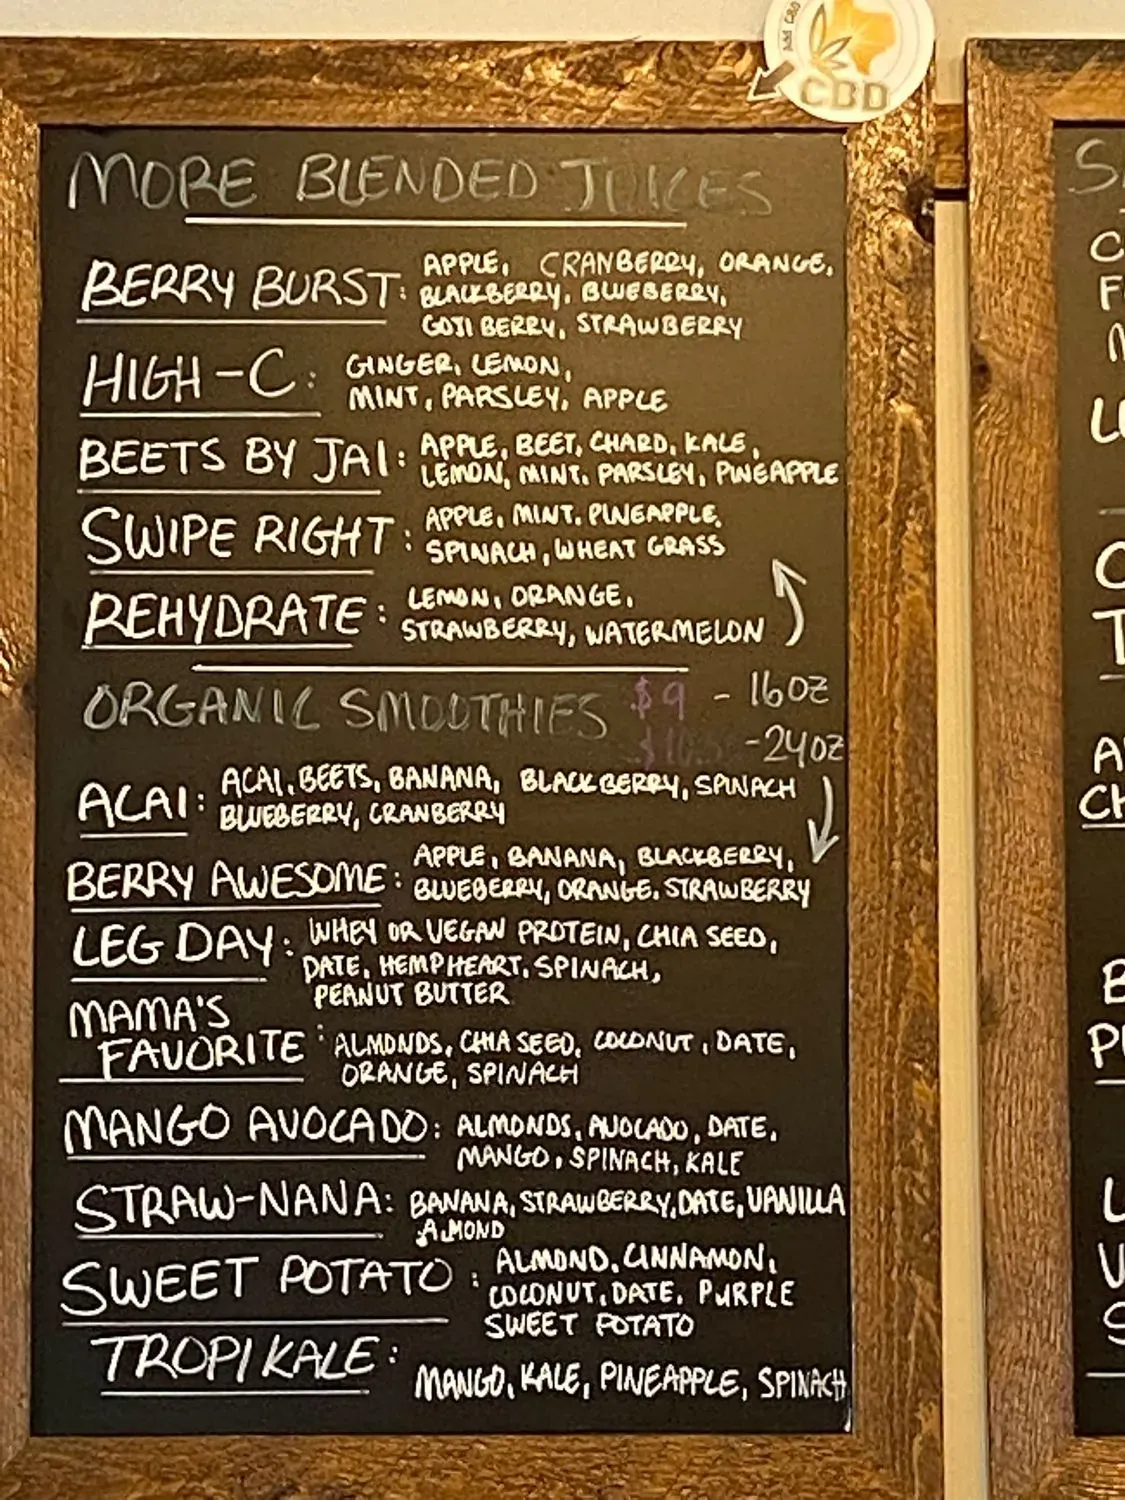 Add CBD
CBD
MORE BLENDED JUICES
BERRY BURST: APPLE, CRANBERRY, ORANGE,
BLACKBERRY, BLUEBERRY,
GOJI BERRY, STRAWBERRY
HIGH-C: GINGER, LEMON,
MINT, PARSLEY, APPLE
BEETS BY JAI: APPLE, BEET, CHARD, KALE,
LEMON, MINT, PARSLEY, PINEAPPLE
SWIPE RIGHT: APPLE, MINT, PINEAPPLE,
SPINACH, WHEAT GRASS
REHYDRATE: LEMON, ORANGE,
STRAWBERRY, WATERMELON
ORGANIC SMOOTHIES $9 - 16OZ
-24OZ
ACAI: ACAI, BEETS, BANANA, BLACKBERRY, SPINACH
BLUEBERRY, CRANBERRY
BERRY AWESOME: APPLE, BANANA, BLACKBERRY,
BLUEBERRY, ORANGE, STRAWBERRY
LEG DAY: WHEY OR VEGAN PROTEIN, CHIA SEED,
DATE, HEMPHEART, SPINACH,
PEANUT BUTTER
MAMA'S
FAVORITE: ALMONDS, CHIA SEED, COCONUT, DATE,
ORANGE, SPINACH
MANGO AVOCADO: ALMONDS, AVOCADO, DATE,
MANGO, SPINACH, KALE
STRAW-NANA: BANANA, STRAWBERRY, DATE, VANILLA
ALMOND
SWEET POTATO: ALMOND, CINNAMON,
COCONUT, DATE, PURPLE
SWEET POTATO
TROPIKALE: MANGO, KALE, PINEAPPLE, SPINACH